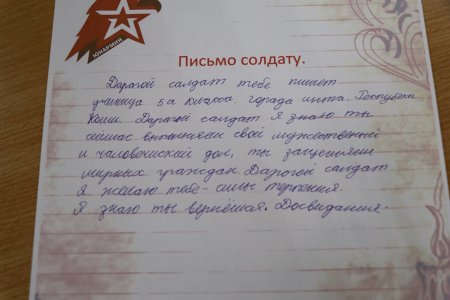 ЮНАРМИЯ
Письмо солдату.
Дарагой салдат тебе пишет
ученица 5а класса, города инта. Республики
Коми. Дарагой салдат я знаю ты
сейчас выполняеш свой мужественый
и человеческий дол, ты защещяеш
мирных граждан. Дарогой салдат
я желаю тебе - силы терпения.
Я знаю ты вернёшся. Досвидания.